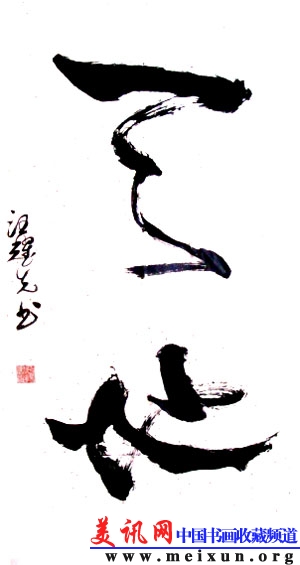 天地
汪耀先书
美讯网 中国书画收藏频道
www.meixun.org